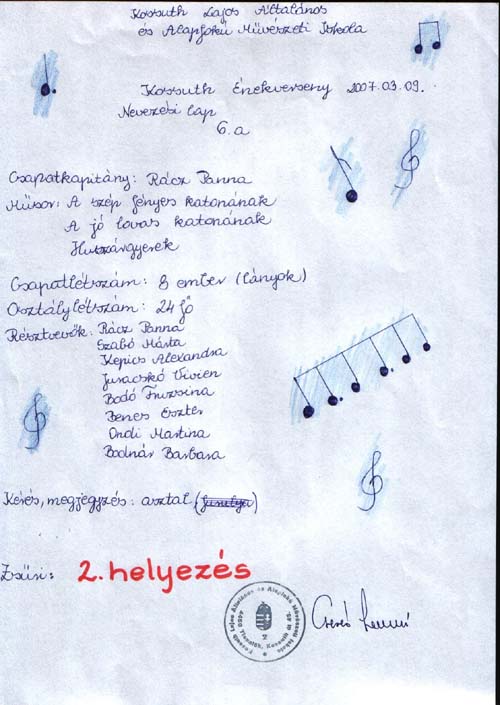 Kossuth Lajos Általános
és Alapfokú Művészeti Iskola
Kossuth Énekverseny 2007.03.09.
Nevezési lap
6.a
Csapatkapitány: Rácz Panna
Műsor: A szép fényes katonának
A jó lovas katonának
Huszárgyerek
Csapatlétszám: 8 ember (lányok)
Osztálylétszám: 24 fő
Résztvevők: Rácz Panna
Szabó Márta
Kepics Alexandra
Juracskó Vivien
Bodó Fruzsina
Benes Eszter
Ondi Martina
Bodnár Barbara
Kérés, megjegyzés: asztal
Zsűri: 2. helyezés
Kossuth Lajos Általános és Alapfokú Művészeti Iskola
4450 Tiszalök, Kossuth út
2